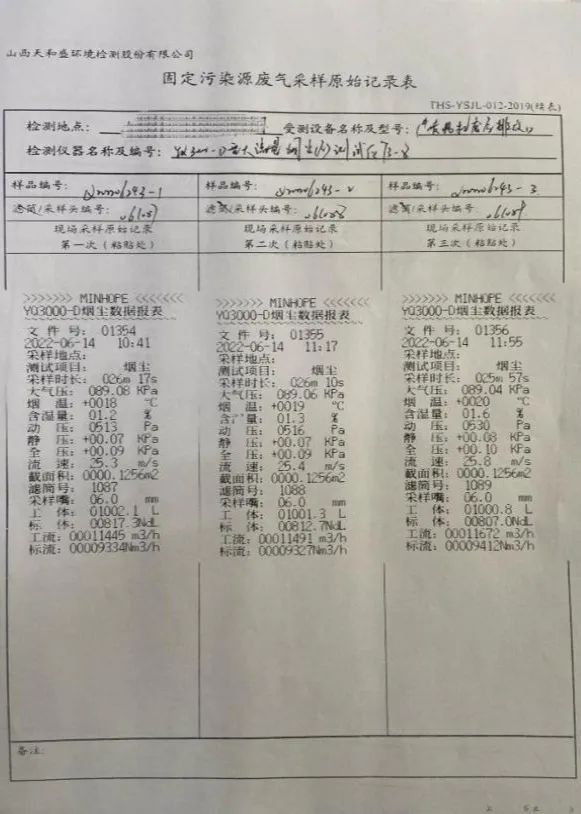 山西天和盛环境检测股份有限公司
固定污染源废气采样原始记录表
THS-YSJL-012-2019(续表)
检测地点： 受测设备名称及型号：
检测仪器名称及编号：
样品编号： 样品编号： 样品编号：
滤筒/采样头编号： 滤筒/采样头编号： 滤筒/采样头编号：
现场采样原始记录 现场采样原始记录 现场采样原始记录
第一次（粘贴处） 第二次（粘贴处） 第三次（粘贴处）
>>>>>>> MINHOPE <<<<<<<
YQ3000-D烟尘数据报表
文 件 号: 01354
2022-06-14 10:41
采样地点:
测试项目: 烟尘
采样时长: 026m 17s
大气压: 089.08 KPa
烟 温: +0018 ℃
含湿量: 01.2 %
动 压: 0513 Pa
静 压: +00.07 KPa
全 压: +00.09 KPa
流 速: 25.3 m/s
截面积: 0000.1256m2
滤筒号: 1087
采样嘴: 06.0 mm
工 体: 01002.1 L
标 体: 00817.3NdL
工流: 00011445 m3/h
标流: 00009334Nm3/h
>>>>>>> MINHOPE <<<<<<<
YQ3000-D烟尘数据报表
文 件 号: 01355
2022-06-14 11:17
采样地点:
测试项目: 烟尘
采样时长: 026m 10s
大气压: 089.06 KPa
烟 温: +0019 ℃
含湿量: 01.3 %
动 压: 0516 Pa
静 压: +00.07 KPa
全 压: +00.09 KPa
流 速: 25.4 m/s
截面积: 0000.1256m2
滤筒号: 1088
采样嘴: 06.0 mm
工 体: 01001.3 L
标 体: 00812.7NdL
工流: 00011491 m3/h
标流: 00009327Nm3/h
>>>>>>> MINHOPE <<<<<<<
YQ3000-D烟尘数据报表
文 件 号: 01356
2022-06-14 11:55
采样地点:
测试项目: 烟尘
采样时长: 025m 57s
大气压: 089.04 KPa
烟 温: +0020 ℃
含湿量: 01.6 %
动 压: 0530 Pa
静 压: +00.08 KPa
全 压: +00.10 KPa
流 速: 25.8 m/s
截面积: 0000.1256m2
滤筒号: 1089
采样嘴: 06.0 mm
工 体: 01000.8 L
标 体: 00807.0NdL
工流: 00011672 m3/h
标流: 00009412Nm3/h
备注: